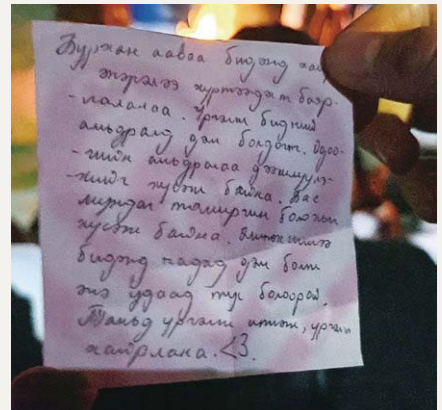 Бурхан ааваа бидэнд хайр
энэрэлээ хүртээдэгт баяр-
-лалаа. Үргэлж бидний
амьдралд дэм болдог. Одоо-
-гийн амьдралаа дээшлүүлэ-
-хийг хүсэж байна. Бас
тамирчин болохыг
хүсэж байна.
бидэнд надад дэм болж
энэ удаад тус болоорой.
Таньд үргэлж итгэж, үргэлж
хайрлана. <3.